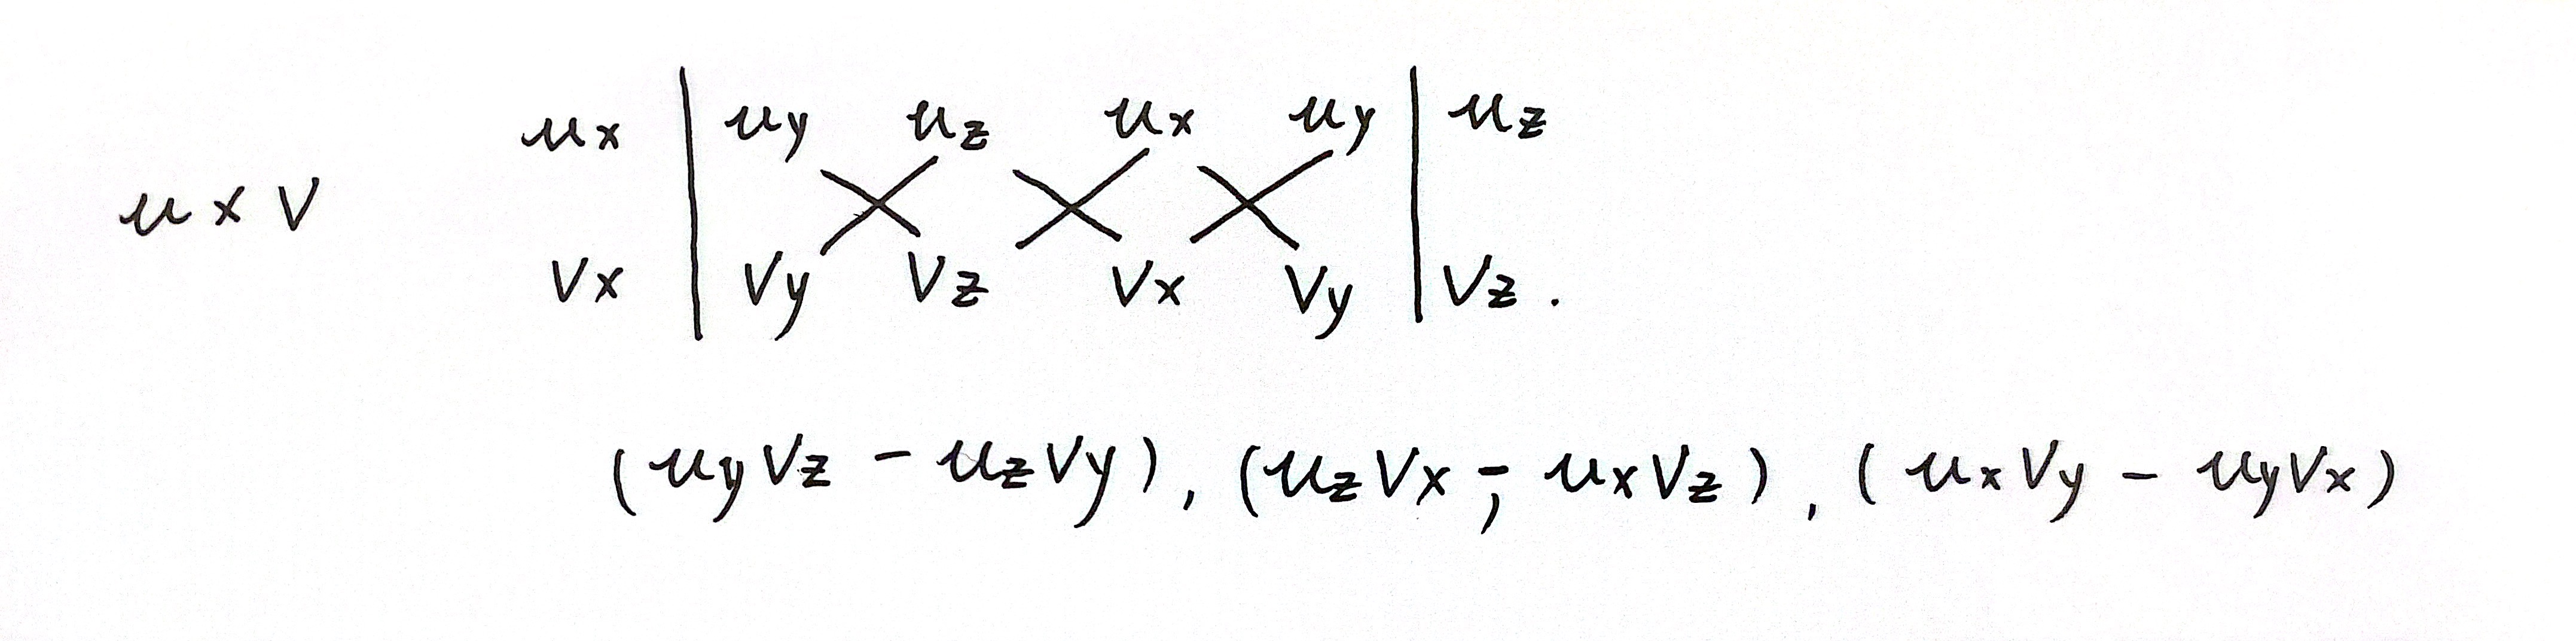 ux | uy uz ux uy | uz
u × v
vx | vy vz vx vy | vz .
(uyvz - uzvy), (uzvx - uxvz), (uxvy - uyvx)